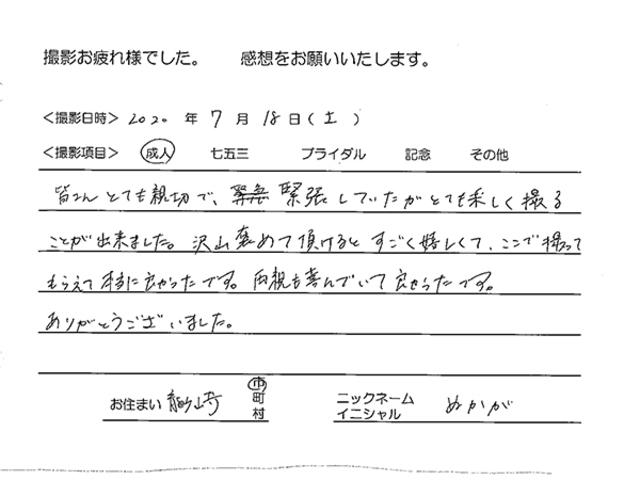 撮影お疲れ様でした。 感想をお願いいたします。
＜撮影日時＞ 2020 年 7 月 18 日（土）
＜撮影項目＞ 成人 七五三 ブライダル 記念 その他
皆さんとても親切で、緊張していたがとても楽しく撮る
ことが出来ました。沢山褒めて頂けるとすごく嬉しくて、ここで撮って
もらえて本当に良かったです。両親も喜んでいて良かったです。
ありがとうございました。
お住まい 龍ヶ崎 市 町 村
ニックネーム イニシャル ぬかが